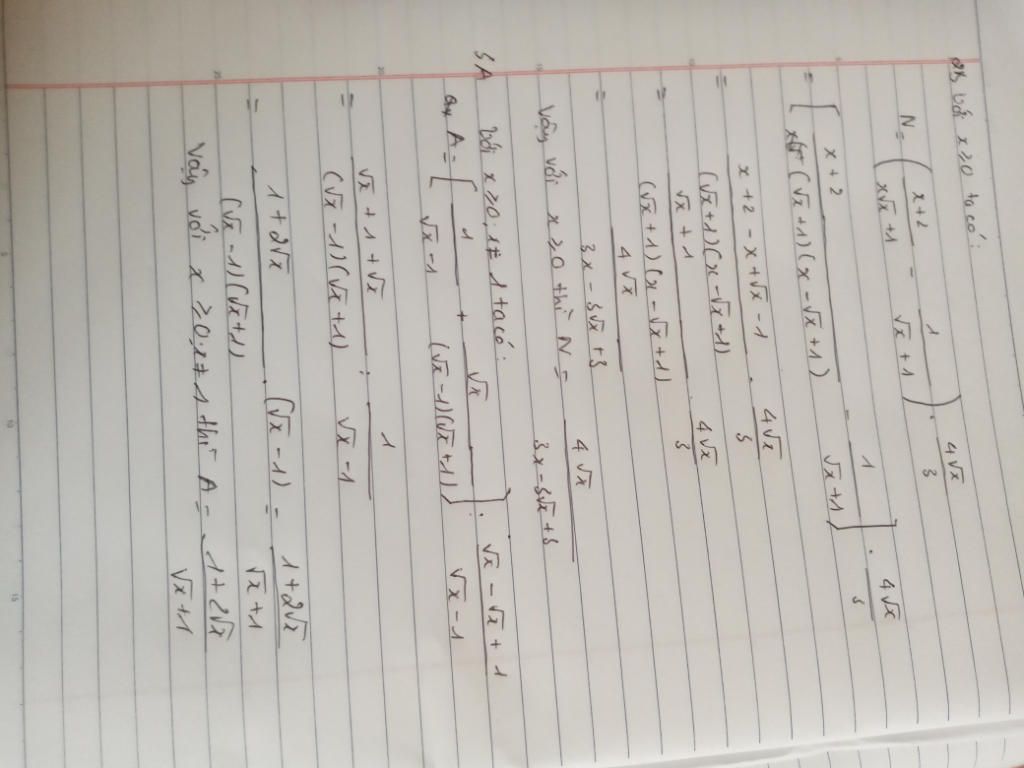 a, Với x ≥ 0 ta có:
N = ( (x+2)/(x√x +1) - 1/(√x +1) ) . 4√x/3
= [ (x+2)/((√x +1)(x - √x +1)) - 1/(√x +1) ] . 4√x/3
= (x+2 - x + √x - 1)/((√x+1)(x-√x+1)) . 4√x/3
= (√x + 1)/((√x +1)(x - √x +1)) . 4√x/3
= 4√x/(3x - 3√x + 3)
Vậy với x ≥ 0 thì N = 4√x/(3x - 3√x + 3)
Với x ≥ 0, x ≠ 1 ta có:
a, A = [ 1/(√x - 1) + √x/((√x - 1)(√x + 1)) ] : (√x - √x + 1)/(√x - 1)
= (√x + 1 + √x)/((√x - 1)(√x + 1)) : 1/(√x - 1)
= (1 + 2√x)/((√x - 1)(√x + 1)) . (√x - 1) = (1 + 2√x)/(√x + 1)
Vậy với x ≥ 0, x ≠ 1 thì A = (1 + 2√x)/(√x + 1)